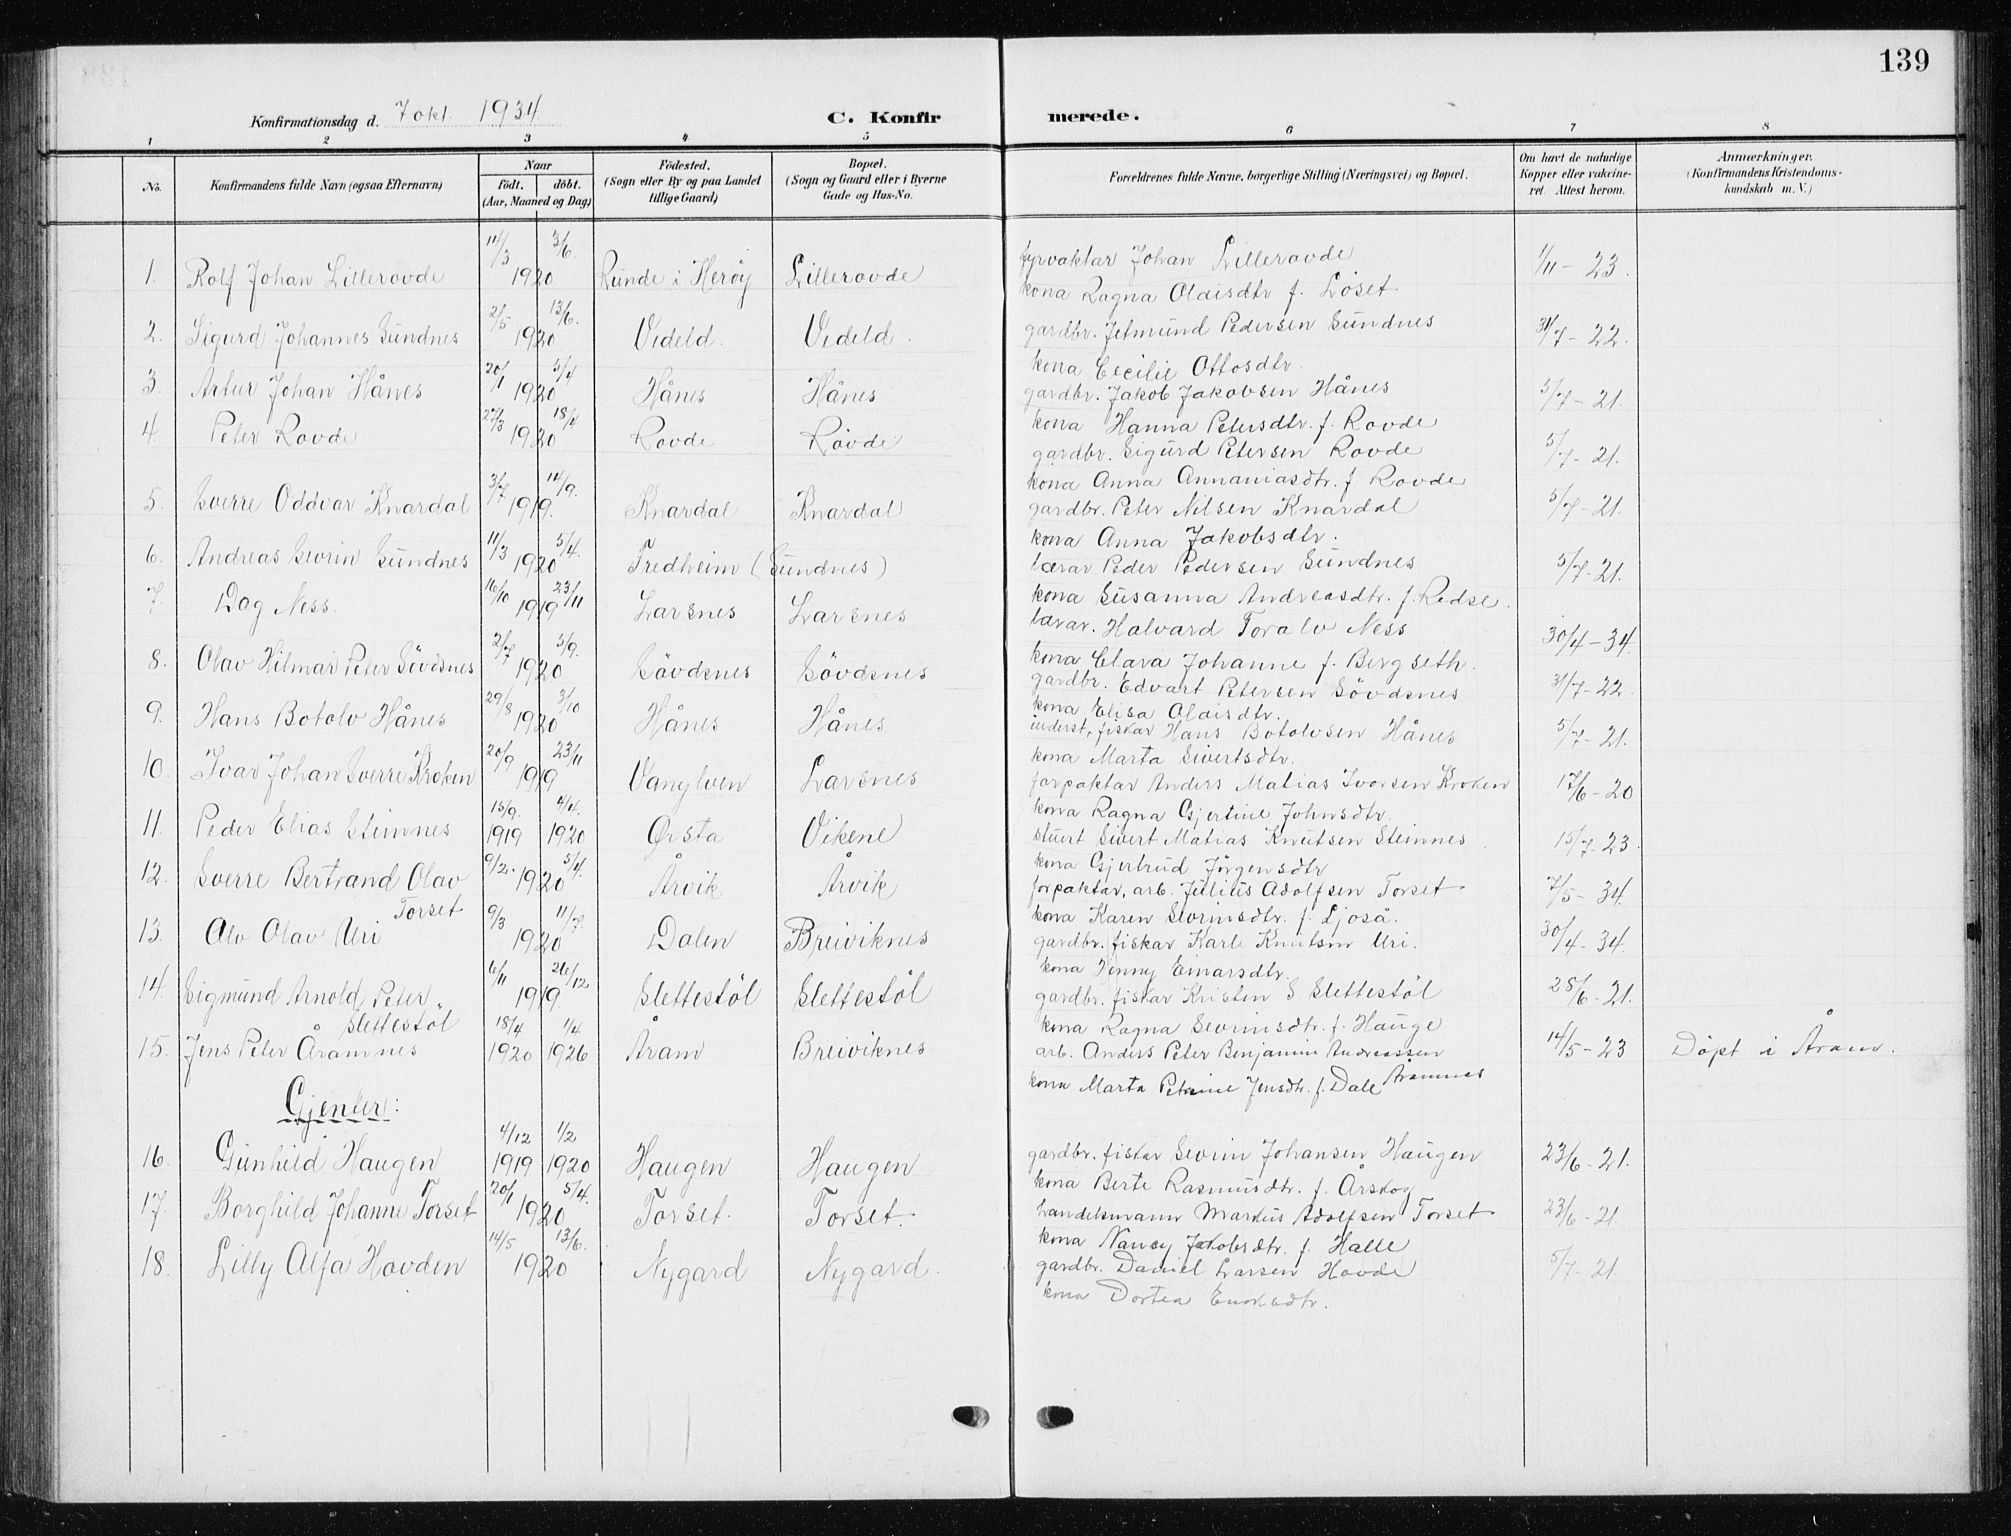 139
Konfirmationsdag d. 7 okt. 1934 C. Konfirmerede.
1 2 3 4 5 6 7 8
No. Konfirmandens fulde Navn (ogsaa Efternavn) Naar födt. döbt. (Aar, Maaned og Dag) Födested. (Sogn eller By og paa Landet tillige Gaard) Bopæl. (Sogn og Gaard eller i Byerne Gade og Hus-No. Forældrenes fulde Navne, borgerlige Stilling (Næringsvei) og Bopæl. Om havt de naturlige Kopper eller vaccineret. Attest herom. Anmærkninger. (Konfirmandens Kristendomskundskab m. V.)
1. Rolf Johan Lillerovde 14/3 3/6. 1920 Runde i Herøy Lillerovde fyrvaktar Johan Lillerovde 1/11 - 23.
kona Ragna Olaisdtr f. Löset.
2. Sigurd Johannes Sundnes 2/5 13/6. 1920 Vedeld. Vedeld. gardbr. Jetmund Pedersen Sundnes 31/7 - 22.
kona Cecilie Ottosdtr.
3. Artur Johan Hånes 20/1 5/4 1920 Hånes Hånes gardbr. Jakob Jakobsen Hånes 5/7 - 21.
kona Hanna Petersdtr. f. Rovde
4. Peter Rovde 27/3 18/4 1920 Rovde Rovde gardbr. Sigurd Petersen Rovde 5/7 - 21.
kona Anna Annaniasdtr. f Rovde
5. Sverre Oddvar Knardal 3/7. 14/9. 1919. Knardal Knardal gardbr. Peter Nilsen Knardal 5/7 - 21.
kona Anna Jakobsdtr.
6. Andreas Sevrin Sundnes 11/3 5/4. 1920 Fredheim (Sundnes) lærar Peder Pedersen Sundnes 5/7 - 21.
kona Susanna Andreasdtr. f. Redse.
7. Dag Ness. 16/10 23/11 1919 Larsnes Larsnes lærar. Halvard Toralv Ness 30/4 - 34.
kona Clara Johanne f. Bergseth.
8. Olav Hilmar Peter Sövdsnes 2/7 5/9. 1920 Sövdsnes Sövdsnes gardbr. Edvart Petersen Sövdsnes 31/7 - 22.
kona Elisa Olaisdtr.
9. Hans Botolv Hånes 29/8 3/10 1920 Hånes Hånes inderst, fiskar Hans Botolvsen Hånes 5/7 - 21.
kona Marta Sivertsdtr.
10. Ivar Johan Sverre Kroken 20/9 23/11 1919 Vanylven Larsnes forpaktar Anders Matias Ivarsen Kroken 17/6 - 20
kona Ragna Gjertine Johnsdtr.
11. Peder Elias Steinnes 15/9. 4/4. 1919 1920 Ørsta Vikene stuert Sivert Matias Knutsen Steinnes 15/7 - 23.
kona Gjertrud Jörgensdtr
12. Sverre Bertrand Olav Torset 9/2. 5/4. 1920 Årvik Årvik forpaktar, arb. Julius Adolfsen Torset 7/5 - 34.
kona Karen Sevrinsdtr. f. Ljoså.
13. Alv Olav Uri 9/3 11/7. 1920 Dalen Breiviknes gardbr. fiskar Karl Knutsen Uri. 30/4 - 34.
kona Jenny Einarsdtr.
14. Sigmund Arnold Peter Slettestöl 6/11 26/12 1919 Slettestöl Slettestöl gardbr. fiskar Kristen S. Slettestöl 28/6 - 21.
kona Ragna Sevrinsdtr. f. Hauge
15. Jens Peter Åramnes 18/4 1/4. 1920 1926 Åram Breiviknes arb. Anders Peter Benjamin Andreassen Åramnes 14/5 - 23 Döpt i Åram.
kona Marta Petrine Jensdtr. f. Dale
Gjenter:
16. Gunhild Haugen 4/12 1/2 1919 1920 Haugen Haugen gardbr. fiskar Sevrin Johansen Haugen 23/6 - 21.
kona Berte Rasmusdtr. f. Årskog
17. Borghild Johanne Torset 20/1 5/4. 1920 Torset. Torset. handelsmann Markus Adolfsen Torset 23/6 - 21.
kona Nancy Jakobsdtr. f. Halle
18. Lilly Alfa Hovden 14/5 13/6. 1920 Nygard Nygard. gardbr. Daniel Larsen Hovde 5/7 - 21.
kona Dortea Enoksdtr.